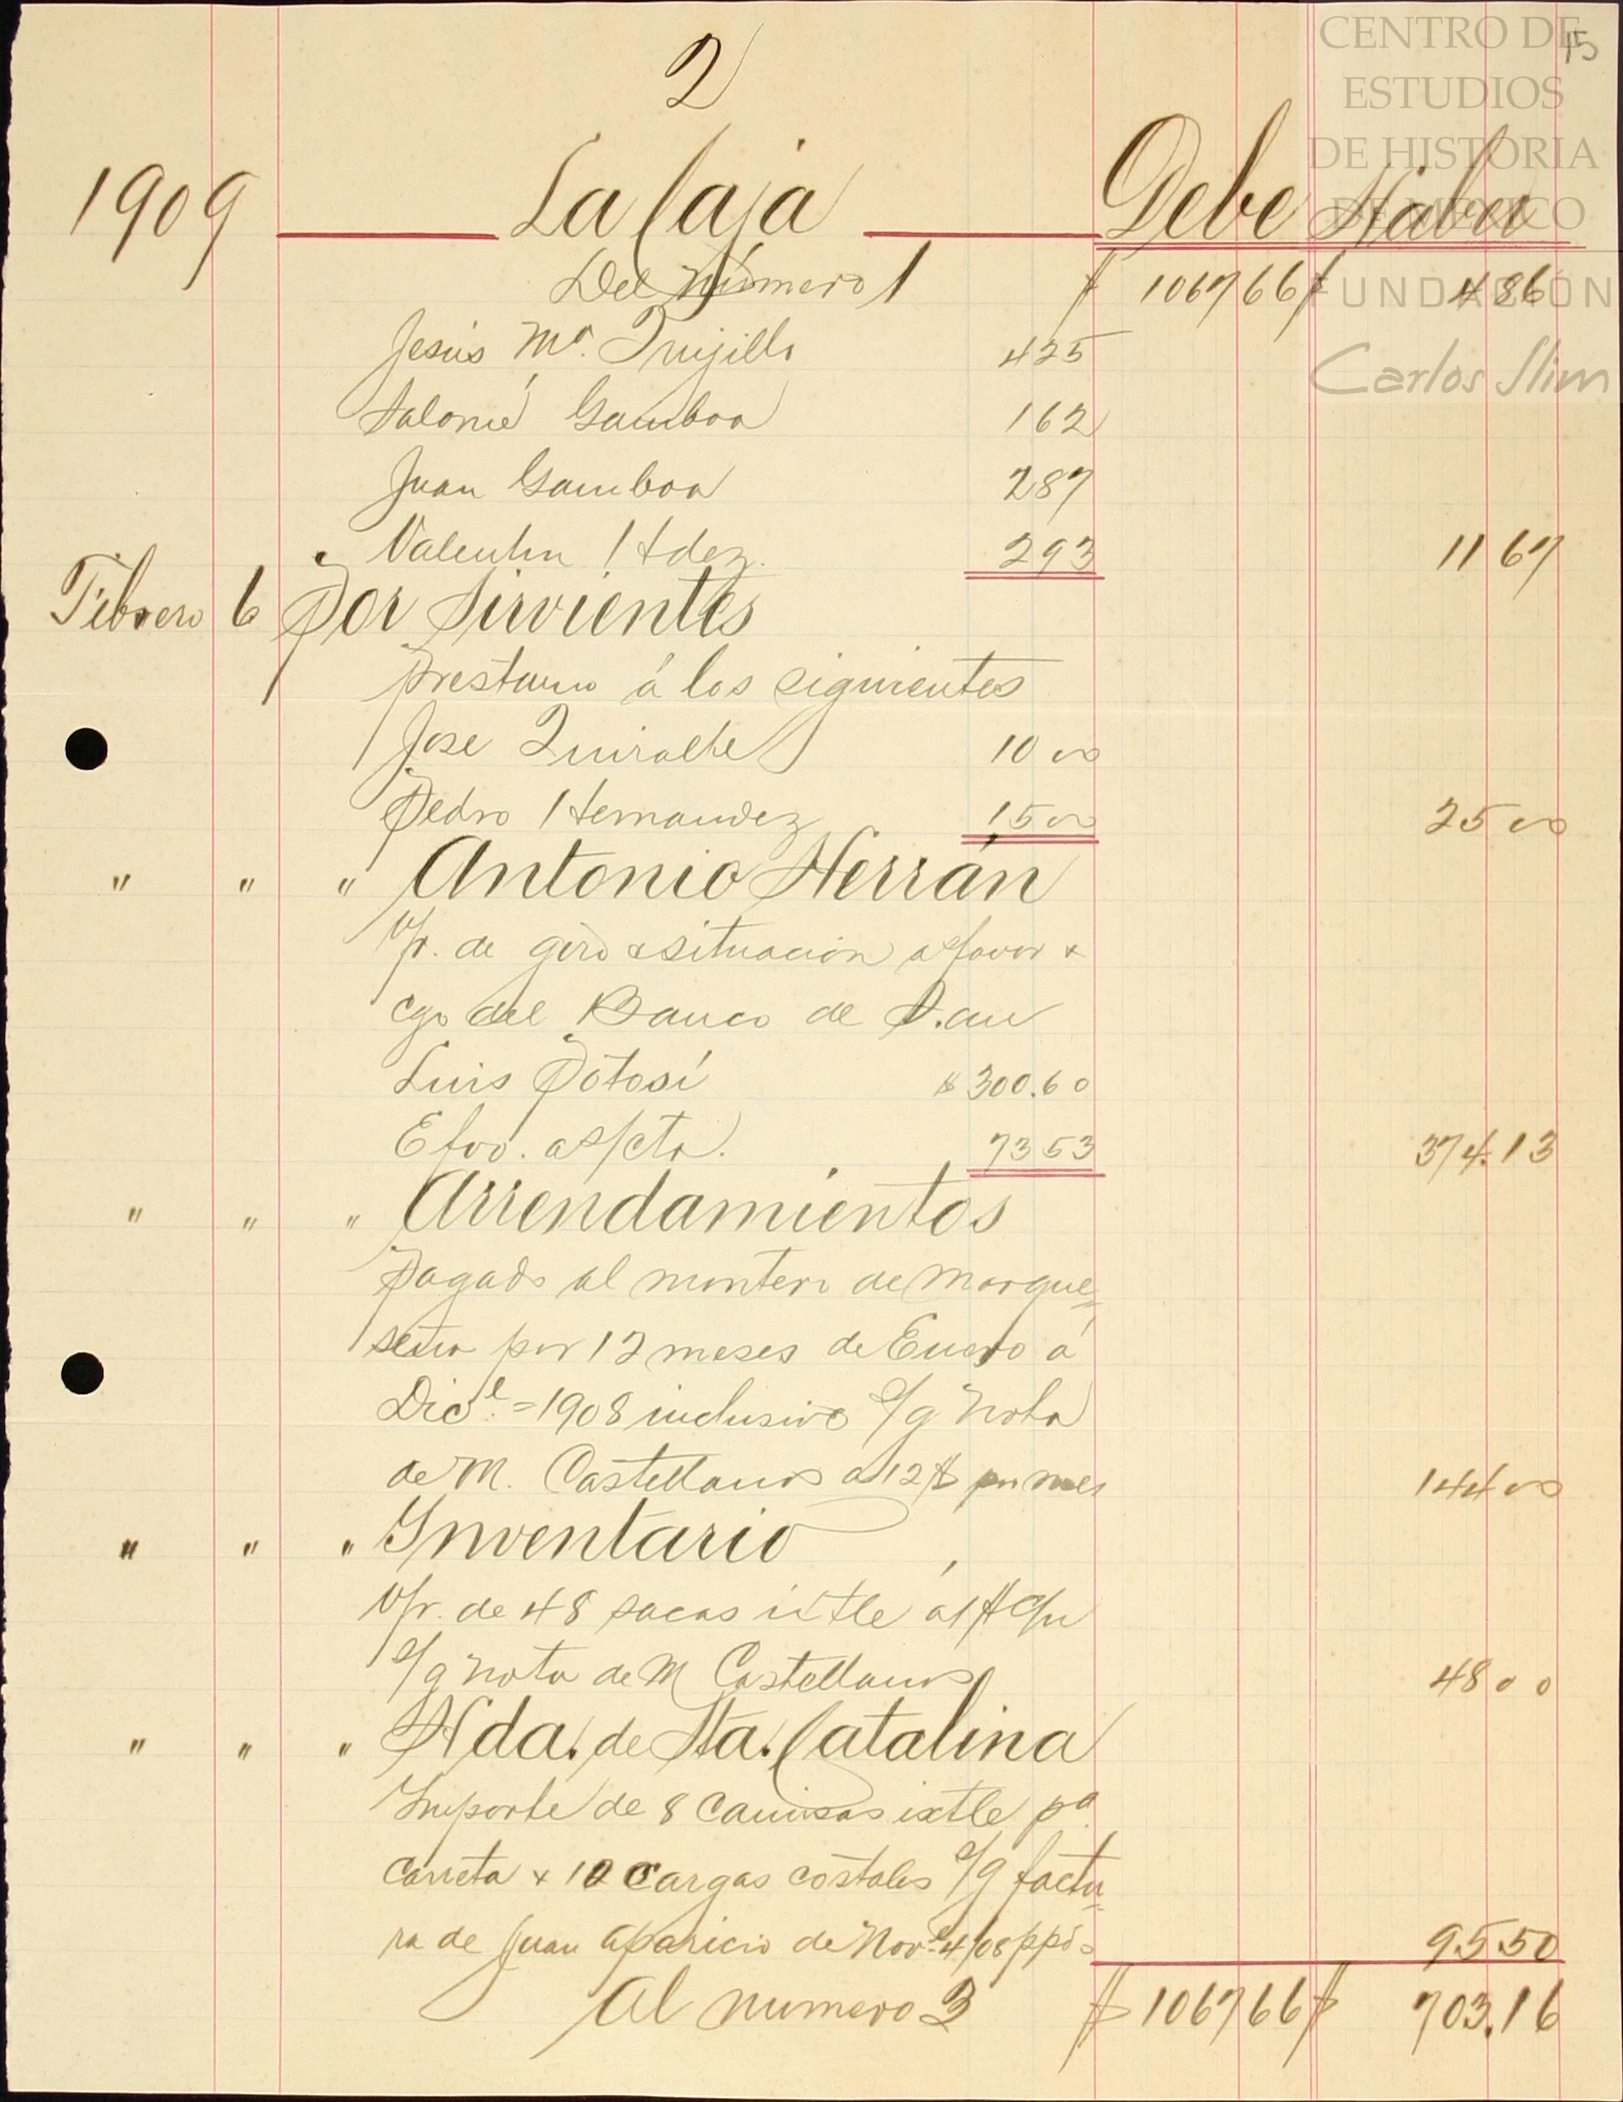 CENTRO DE
ESTUDIOS
DE HISTORIA
DE MÉXICO
FUNDACIÓN
Carlos Slim
15
2
1909 La Caja Debe Haber
Del número 1 $ 1067 66 $ 4 86
Jesús Ma. Trujillo 4 25
Salomé Gamboa 1 62
Juan Gamboa 2 87
Valentin Hdez. 2 93 11 67
Febrero 6 Por Sirvientes
Prestamo á los siguientes
Jose Quiralte 10 00
Pedro Hernandez 15 00 25 00
" " " Antonio Herrán
V/r. de giro situación a/favor
cgo del Banco de San
Luis Potosí $ 300.60
Efvo. a s/cta. 73 53 374.13
" " " Arrendamientos
Pagado al montero de Marque
por 12 meses de Enero á
Dice. = 1908 inclusive s/g Nota
de M. Castellanos a 12 $ por mes 144 00
" " " Inventario
V/r. de 48 sacas ixtle á 1 $ c/u
s/g Nota de M Castellanos 48 00
" " " Hda. de Sta. Catalina
Importe de 8 camisas ixtle pa.
carreta 10 cargas costales s/g factu
ra de Juan Aparicio de Nove. 4/08 ppdo 95 50
Al numero 3 $ 1067 66 $ 703.16